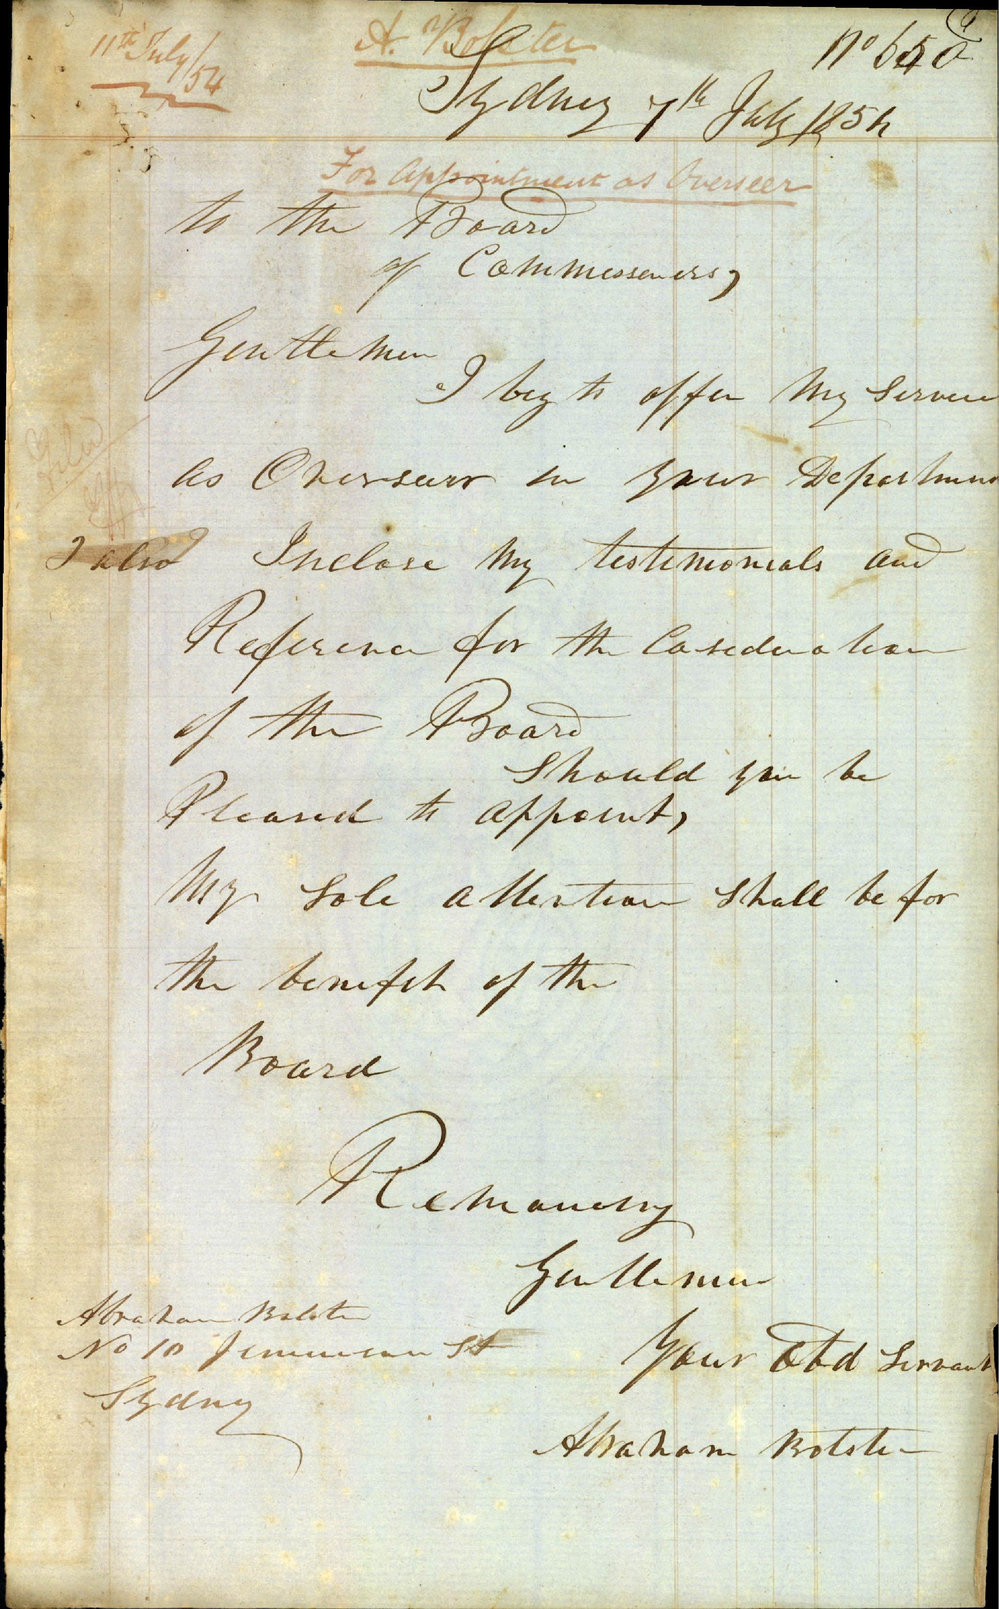 11th July/54
A. Bolster
Sydney 7th July 1854
For Appointment as Overseer
to the Board
of Commissoners,
Gentlemen
I beg to offer My Service
as Overseer in your Department
I also Inclose My testimonials and
Reference for the Casederation
of the Board
Should you be
Pleased to appoint,
My Sole attention shall be for
the benefit of the
Board
Remaning
Gentlemen
Your Obd Servant
Abraham Bolster
Abraham Bolster
No 10 St
Sydney